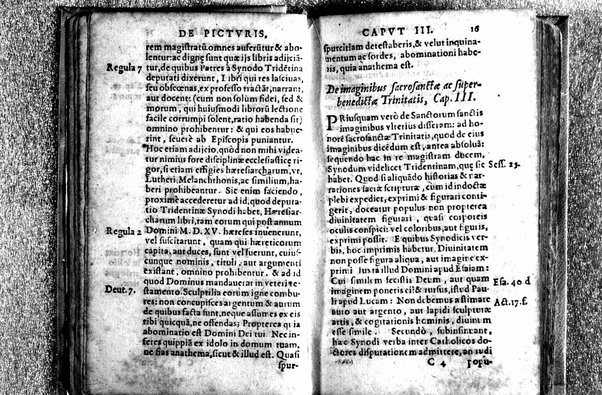 DE PICTVRIS.
rem magistratū omnes auferūtur & abo-
lentur: ac dignę sunt quæ ijs libris adijciā-
Regula 7 tur, de quibus Patres à Synodo Tridētina
deputati dixerunt, Libri qui res lasciuas,
seu obscœnas, ex professo tractāt, narrant,
aut docent: (cum non solum fidei, sed &
morum, qui huiusmodi librorū lectione
facile corrumpi solent, ratio habenda sit)
omnino prohibentur: & qui eos habue-
rint, seuerè ab Episcopis puniantur.
Hoc etiam adijcio, quòd non mihi videa-
tur nimius fore disciplinæ ecclesiasticę ri-
gor, si etiam effigies hæresiarcharum, vt,
Lutheri, Melanchthonis, ac similium, ha-
beri prohibeantur. Sic enim faciendo,
proximè accederetur ad id, quod deputa-
tio Tridentinæ Synodi habet, Hæresiar-
charum libri, tam eorum qui post annum
Regula 2 Domini M. D. XV. hæreses inuenerunt,
vel suscitarunt, quam qui hæreticorum
capita, aut duces, sunt vel fuerunt, cuius-
cunque nominis, tituli, aut argumenti
existant, omnino prohibentur. & ad id
quod Dominus mandauerat in veteri te-
Deut. 7. stamento. Sculptilia eorum igne combu-
res: non concupisces argentum & aurum
de quibus facta sunt, neque assumes ex eis
tibi quicquā, ne offendas; Propterea quia
abominatio est Domini Dei tui. Nec in-
feres quippiā ex idolo in domum tuam,
ne fias anathema, sicut & illud est. Quasi
spur-
CAPVT III. 16
spurcitiam detestaberis, & velut inquina-
mentum ac sordes, abominationi habe-
bis, quia anathema est.
De imaginibus sacrosanctæ ac super-
benedictæ Trinitatis, Cap. III.
PRiusquam verò de Sanctorum sanctis
imaginibus vlterius disseram: ad ho-
norē sacrosanctæ Trinitatis, quod de eius
imaginibus dicēdum est, antea absoluā:
sequendo hac in re magistram docem,
Synodum videlicet Tridentinam, quę sic Sess. 25.
habet. Quod si aliquādo historias & nar-
rationes sacræ scripturæ, cùm id indoctæ
plebi expediet, exprimi & figurari contin-
gerit, doceatur populus non propterea
diuinitatem figurari, quasi corporeis
oculis conspici: vel coloribus, aut figuris,
exprimi possit. E quibus Synodicis ver-
bis, hoc imprimis habetur, Diuinitatem
non posse figura aliqua, aut imagine ex-
primi iuxta illud Domini apud Esaiam:
Cui similem fecistis Deum, aut quam Esa. 40 d
imaginem ponetis ei? & rursus, istud Pau-
li apud Lucam: Non debemus æstimare Act. 17. f.
auro aut argento, aut lapidi sculpturæ
artis, & cogitationis hominis, diuinum
esse simile. Secundò, subinferunt,
hæc Synodi verba inter Catholicos do-
ctores disputationem admittere, an iudi
C 4 popu-